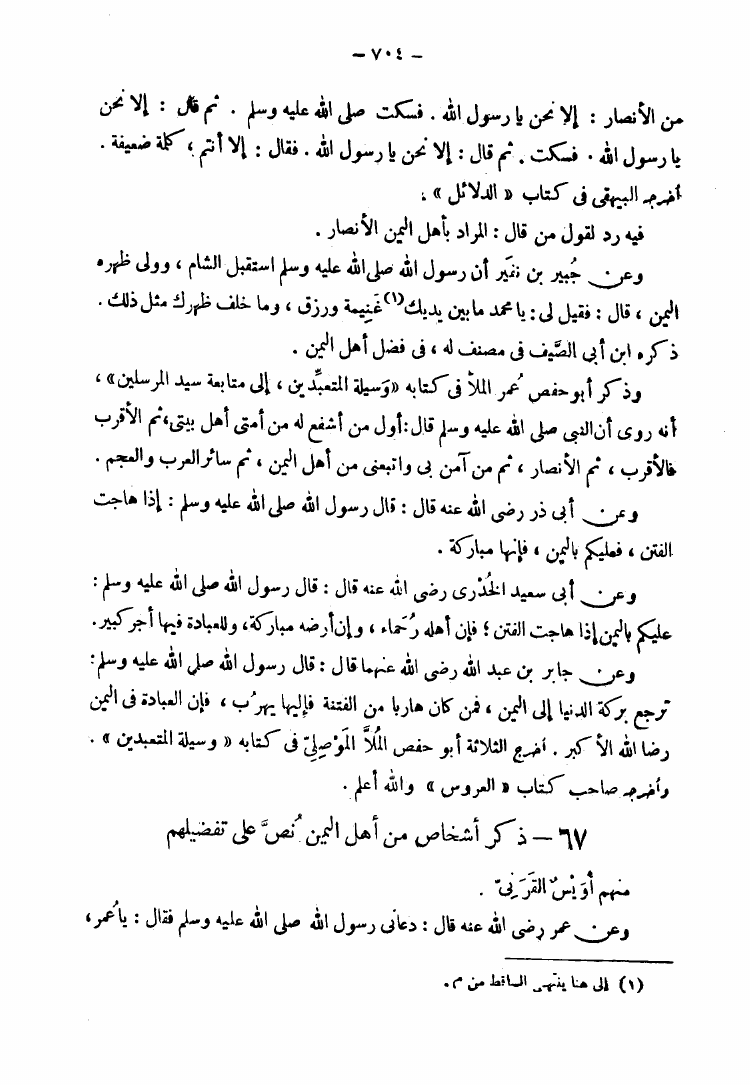 – ٧٠٤ –
من الأنصار : إلا نحن يا رسول الله . فسكت صلى الله عليه وسلم . ثم قال : إلا نحن
يا رسول الله . فسكت . ثم قال : إلا نحن يا رسول الله . فقال : إلا أنتم ؛ كلمة ضعيفة .
أخرجه البيهقى فى كتاب « الدلائل » .
فيه رد لقول من قال : المراد بأهل اليمن الأنصار .
وعن جُبير بن نفَير أن رسول الله صلى الله عليه وسلم استقبل الشام ، وولى ظهره
اليمن ، قال : فقيل لى : يا محمد ما بين يديك(١) غَنِيمة ورزق ، وما خلف ظهرك مثل ذلك .
ذكره ابن أبي الصَّيف فى مصنف له ، فى فضل أهل اليمن .
وذكر أبو حفص عُمر الملأ فى كتابه «وَسيلة المتعبِّدين ، إلى متابعة سيد المرسلين» ،
أنه روى أن النبى صلى الله عليه وسلم قال : أول من أشفع له من أمتى أهل بيتى ، ثم الأقرب
فالأقرب ، ثم الأنصار ، ثم من آمن بى واتبعنى من أهل اليمن ، ثم سائر العرب والعجم .
وعن أبى ذر رضى الله عنه قال : قال رسول الله صلى الله عليه وسلم : إذا هاجت
الفتن ، فعليكم باليمن ، فإنها مباركة .
وعن أبى سعيد الخُدْرى رضى الله عنه قال : قال رسول الله صلى الله عليه وسلم :
عليكم باليمن إذا هاجت الفتن ؛ فإن أهله رُحماء ، وإن أرضه مباركة ، وللعبادة فيها أجر كبير .
وعن جابر بن عبد الله رضى الله عنهما قال : قال رسول الله صلى الله عليه وسلم :
ترجع بركة الدنيا إلى اليمن ، فمن كان هاربا من الفتنة فإليها يهرُب ، فإن العبادة فى اليمن
رضا الله الأكبر . أخرج الثلاثة أبو حفص المُلاَّ المَوْصِلِىّ فى كتابه « وسيلة المتعبدين » .
وأخرجه صاحب كتاب « العروس » والله أعلم .
٦٧ – ذكر أشخاص من أهل اليمن نُصَّ على تفضيلهم
منهم أوَيْسٌ القَرَنِىّ .
وعن عمر رضى الله عنه قال : دعانى رسول الله صلى الله عليه وسلم فقال : يا عُمر ،
(١) إلى هنا ينتهى الساقط من م .